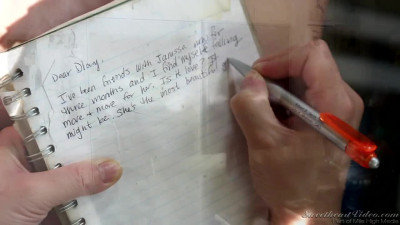 Dear Diary,
I've been friends with now for
three months and I find myself feeling
more + more for her. Is it love? It
might be. She's the most beautiful
SweetheartVideo.com
Part of Mile High Media